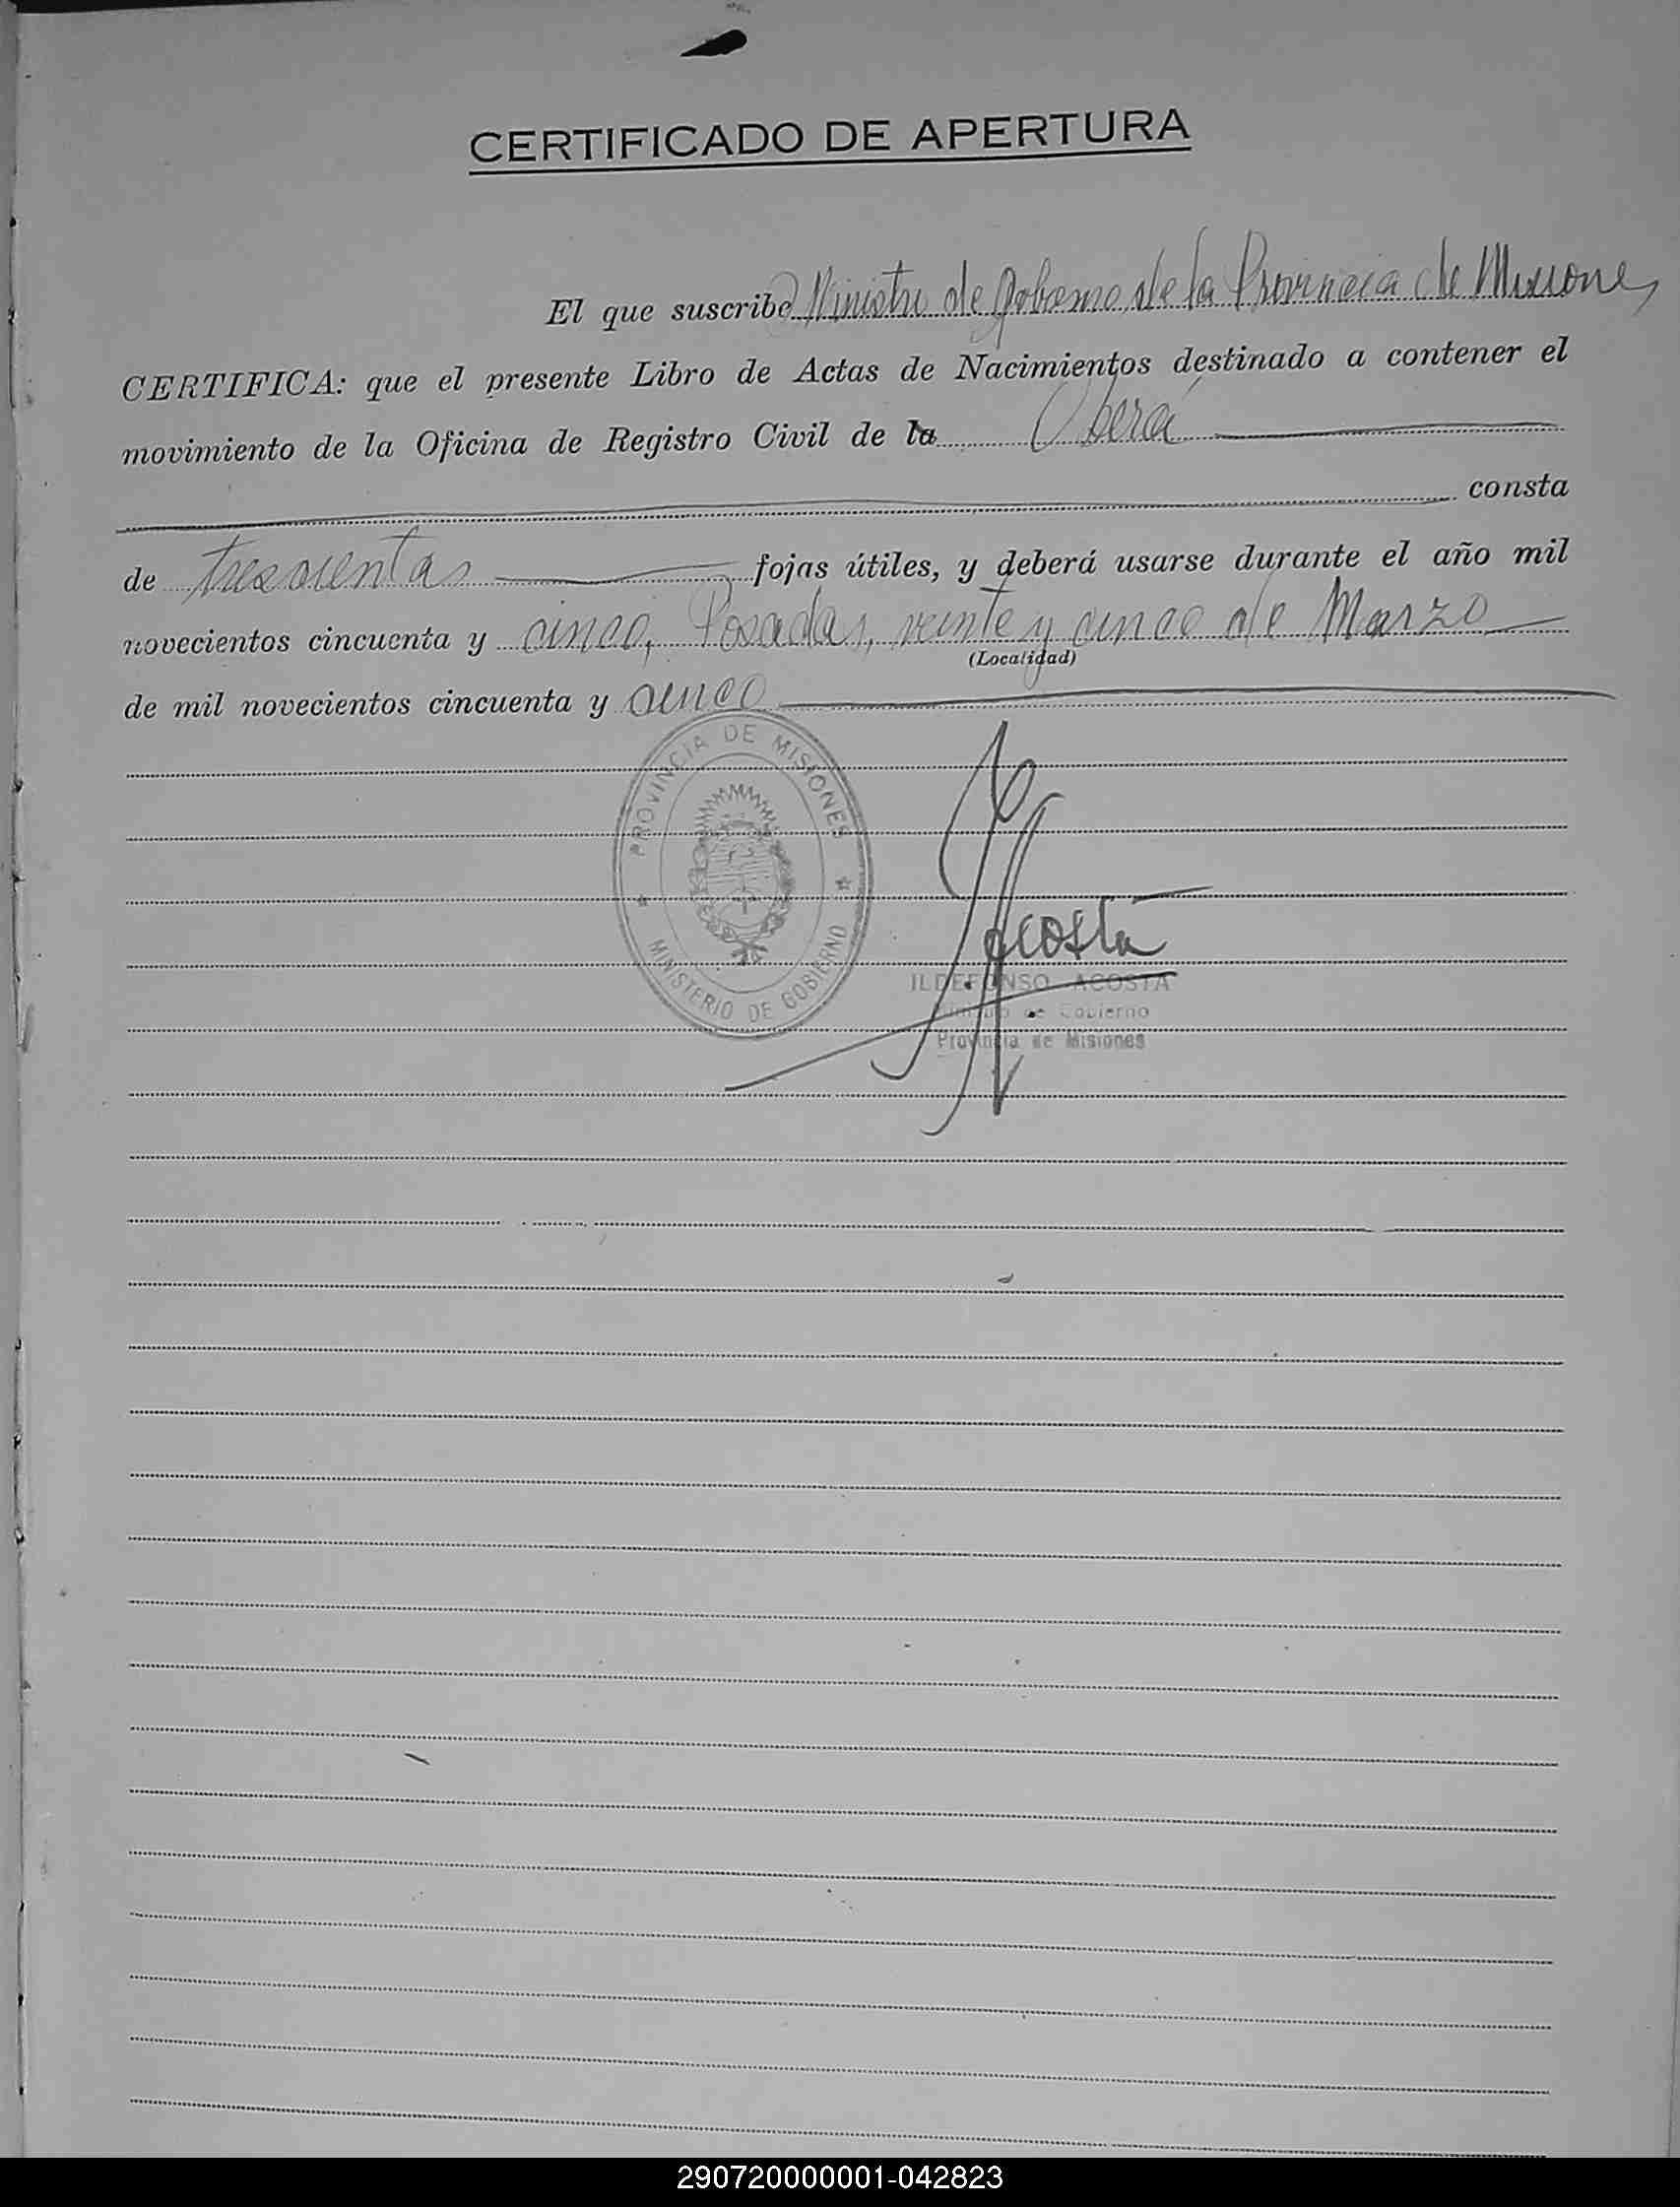 CERTIFICADO DE APERTURA
El que suscribe Ministro de Gobierno de la Provincia de Misiones,
CERTIFICA: que el presente Libro de Actas de Nacimientos destinado a contener el
movimiento de la Oficina de Registro Civil de la Oberá
consta
de trescientas fojas útiles, y deberá usarse durante el año mil
novecientos cincuenta y cinco, Posadas, veinte y cinco de Marzo
(Localidad)
de mil novecientos cincuenta y cinco
PROVINCIA DE MISIONES
MINISTERIO DE GOBIERNO
Acosta
ILDEFONSO ACOSTA
Ministro de Gobierno
Provincia de Misiones
290720000001-042823